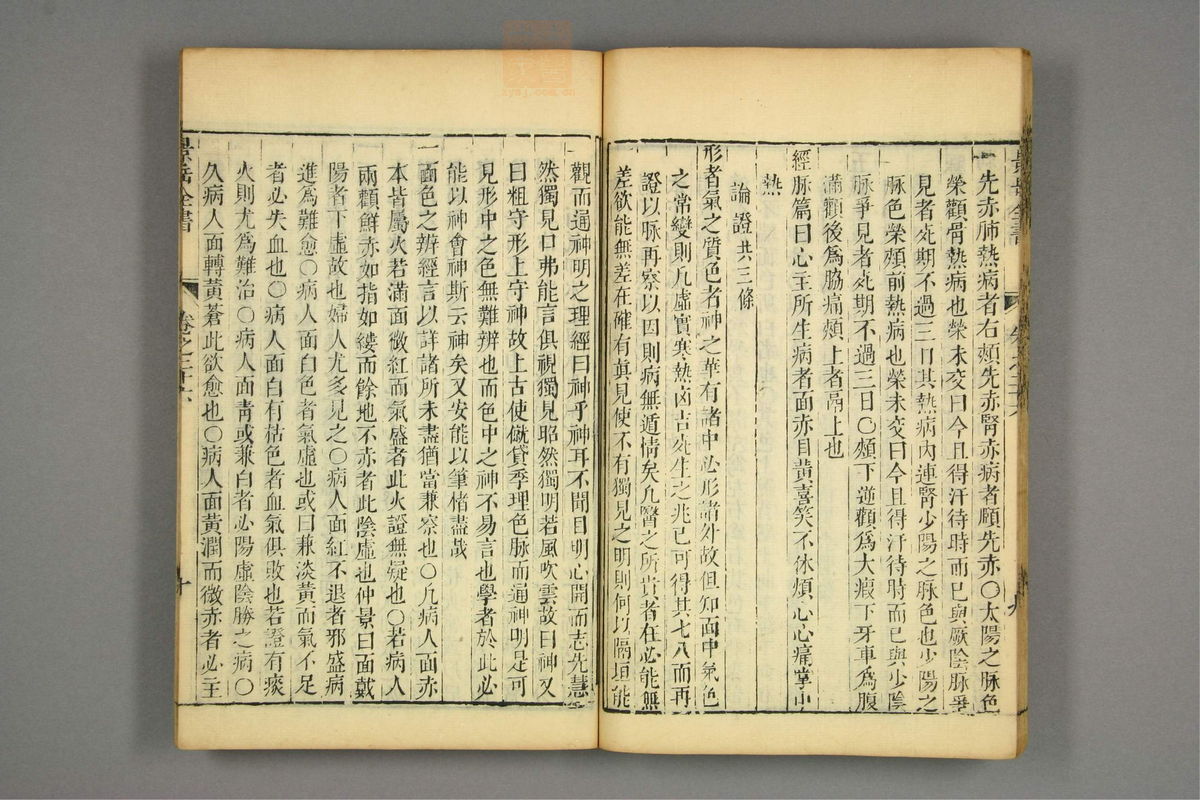 景岳全書
卷之二十六
九
先赤肺熱病者右頰先赤腎赤病者頤先赤〇太陽之脉色
榮顴骨熱病也榮未交曰今且得汗待時而已與厥陰脉爭
見者死期不過三日其熱病內連腎少陽之脉色也少陽之
脉色榮頰前熱病也榮未交曰今且得汗待時而已與少陰
脉爭見者死期不過三日〇頰下逆顴爲大瘕下牙車爲腹
滿顴後爲脇痛頰上者鬲上也
經脉篇曰心主所生病者面赤目黃喜笑不休煩心心痛掌中
熱
論證共三條
形者氣之質色者神之華有諸中必形諸外故但知面中氣色
之常變則凡虛實寒熱凶吉死生之兆已可得其七八而再
證以脉再察以因則病無遁情矣凡醫之所貴者在必能無
差欲能無差在確有真見使不有獨見之明則何以隔垣能
觀而通神明之理經曰神乎神耳不聞目明心開而志先慧
然獨見口弗能言俱視獨見昭然獨明若風吹雲故曰神又
曰粗守形上守神故上古使僦貸季理色脉而通神明是可
見形中之色無難辨也而色中之神不易言也學者於此必
能以神會神斯云神矣又安能以筆楮盡哉
一面色之辨經言以詳諸所未盡猶當兼察也〇凡病人面赤
本皆屬火若滿面微紅而氣盛者此火證無疑也〇若病人
兩顴鮮赤如指如縷而餘地不赤者此陰虛也仲景曰面戴
陽者下虛故也婦人尤多見之〇病人面紅不退者邪盛病
進爲難愈〇病人面白色者氣虛也或曰兼淡黃而氣不足
者必失血也〇病人面白有枯色者血氣俱敗也若證有痰
火則尤爲難治〇病人面青或兼白者必陽虛陰勝之病〇
久病人面轉黃蒼此欲愈也〇病人面黃潤而微赤者必主
景岳全書
卷之二十六
十